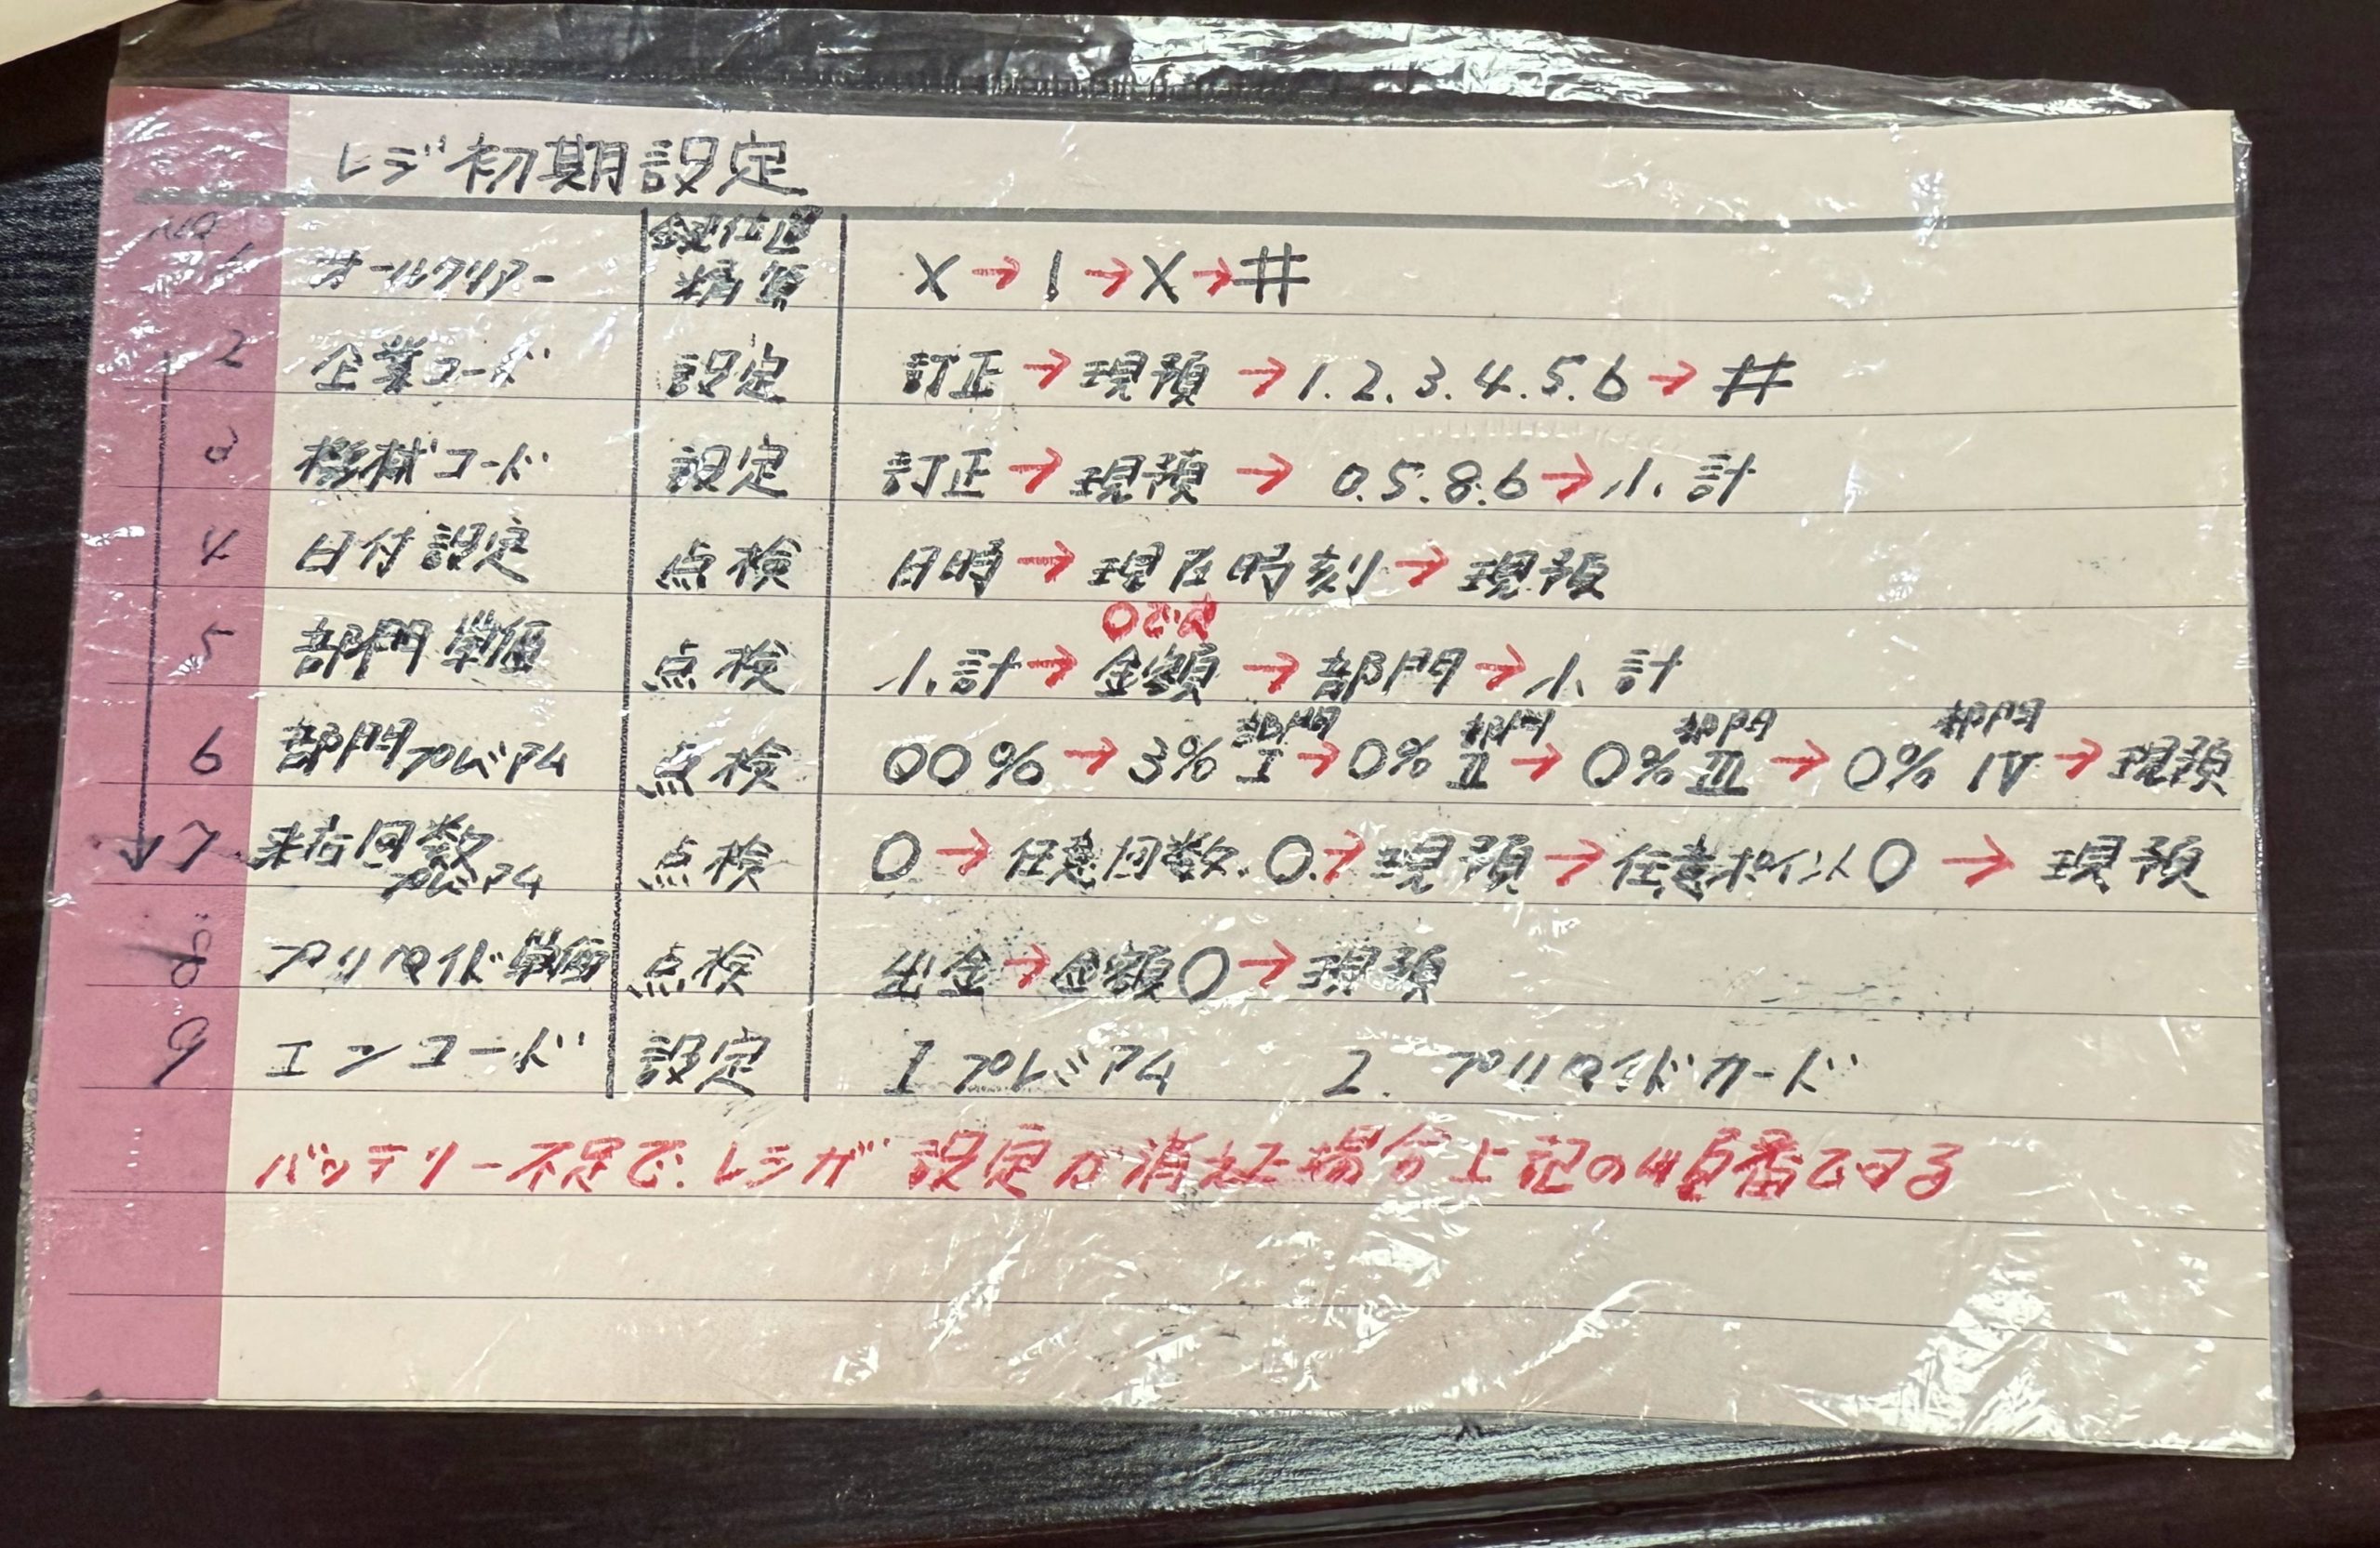 レジ初期設定
NO 鍵位置
1 オールクリアー 精算 X→1→X→#
2 企業コード 設定 訂正→現預→1.2.3.4.5.6→#
3 機械コード 設定 訂正→現預→0.5.8.6→小計
4 日付設定 点検 日時→現在時刻→現預
0でよ
5 部門単価 点検 小計→金額→部門→小計
部門 部門 部門 部門
6 部門プレミアム 点検 00%→3% I→0% II→0% III→0% IV→現預
7 来店回数プレミアム 点検 0→任意回数.0.→現預→任意ポイント0→現預
8 プリペイド単価 点検 出金→金額0→現預
9 エンコード 設定 1 プレミアム 2. プリペイドカード
バッテリー不足で.レジガ設定が消えた場合上記の順番でする